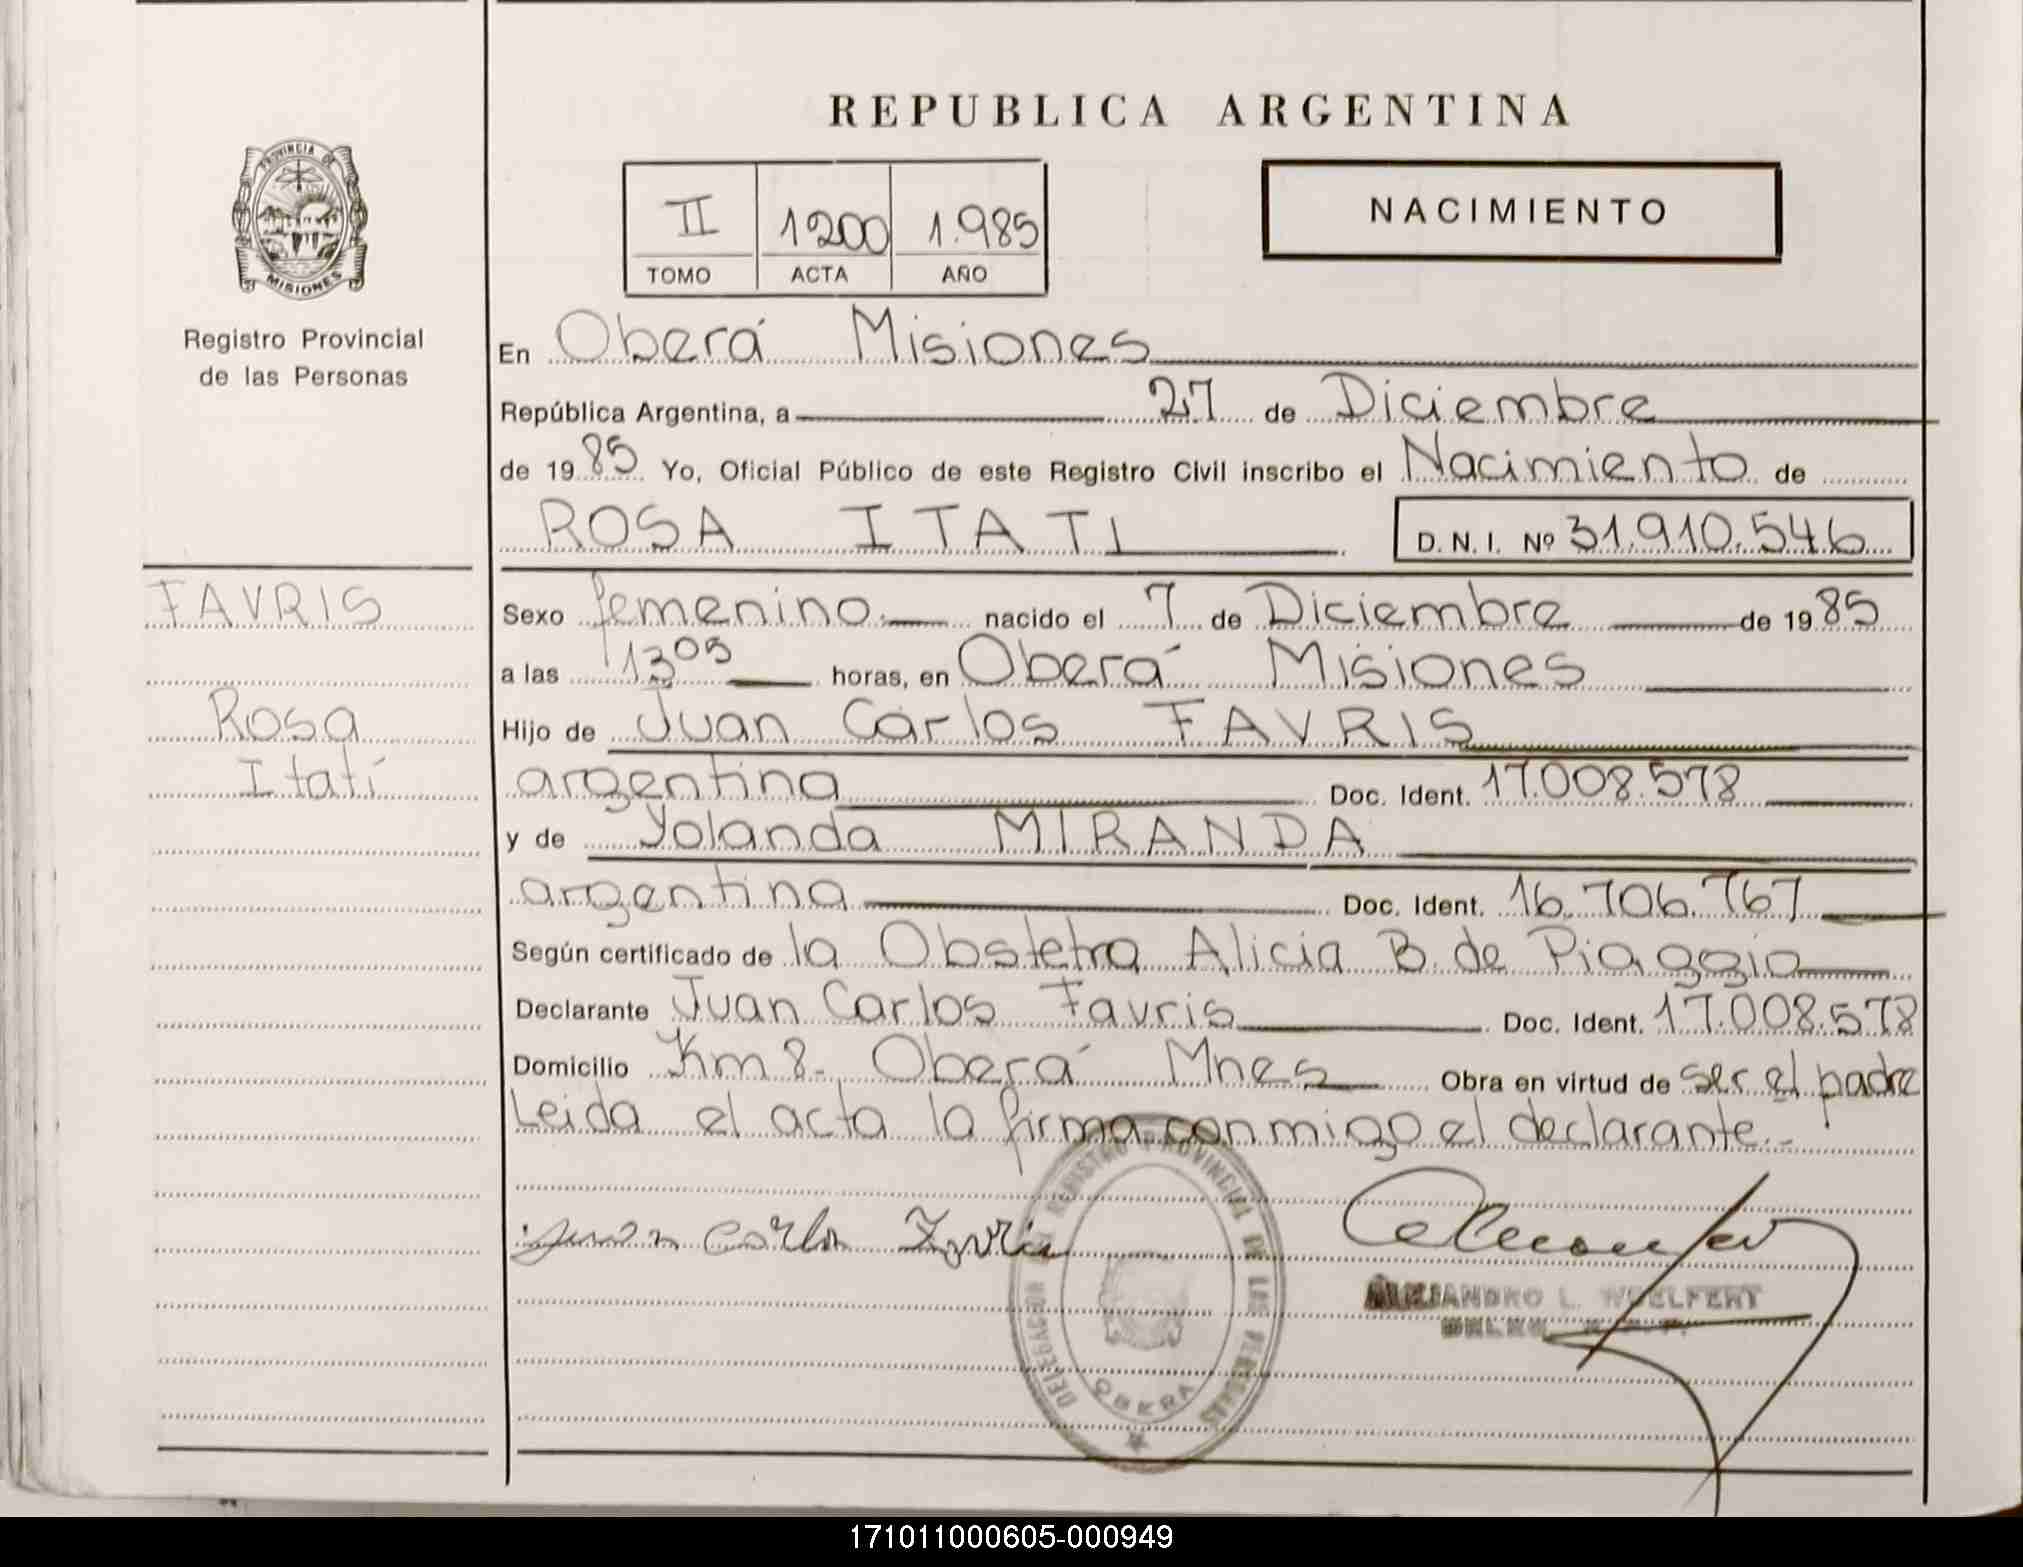 REPUBLICA ARGENTINA
PROVINCIA DE
MISIONES
Registro Provincial
de las Personas
II 1200 1.985
TOMO ACTA AÑO
NACIMIENTO
En Oberá Misiones
República Argentina, a 27 de Diciembre
de 1985 Yo, Oficial Público de este Registro Civil inscribo el Nacimiento de
ROSA ITATI D.N.I. Nº 31.910.546
FAVRIS
Rosa
Itatí
Sexo femenino nacido el 7 de Diciembre de 1985
a las 13 05 horas, en Oberá Misiones
Hijo de Juan Carlos FAVRIS
argentina Doc. Ident. 17.008.578
y de Yolanda MIRANDA
argentina Doc. Ident. 16.706.767
Según certificado de la Obstetra Alicia B. de Piaggio
Declarante Juan Carlos Favris Doc. Ident. 17.008.578
Domicilio Km 8. Oberá Mnes Obra en virtud de ser el padre
Leida el acta la firma conmigo el declarante.-
Juan Carlos Favris
DELEGACION DEL REGISTRO PROVINCIAL DE LAS PERSONAS
OBERA
ALEJANDRO L. WOELFERT
171011000605-000949